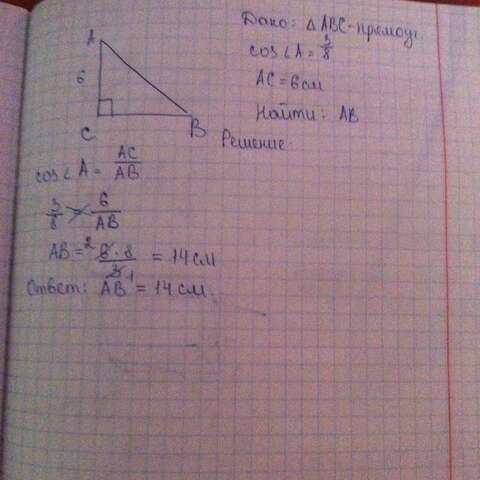 Дано: △ ABC-прямоуг.
cos∠A = 3/8
AC = 6см
Найти: AB
A
6
C
B
Решение
cos∠A = AC/AB
3/8 = 6/AB
AB = ²6·8/3 1 = 14см
Ответ: AB = 14 см.